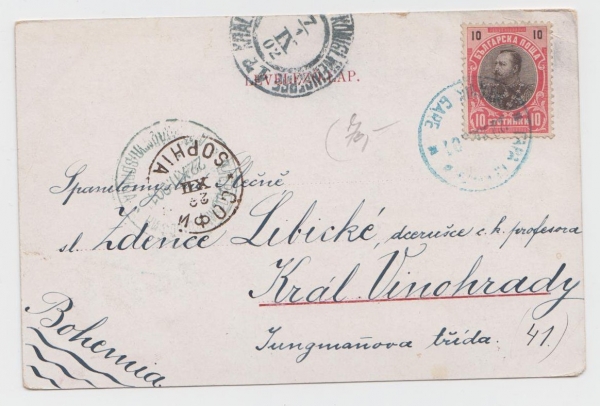 KRÁL.
LEVELEZŐ-LAP.
10 10
БЪЛГАРСКА ПОЩА
10 СТОТИНКИ 10
ГАРЕ
SOPHIA
СОФИЯ
XII
Spanilomyslné Slečně
sl. Zdence Libické, dcerušce c.k. profesora
Král. Vinohrady
Jungmaňova třída. (41.)
Bohemia